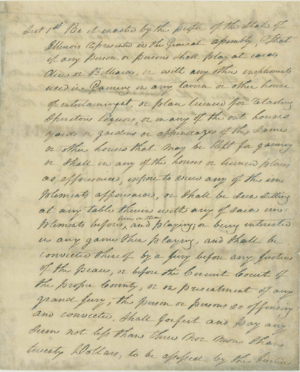 Sect 1st Be it enacted by the people of the State of
Illinois represented in the General assembly, That
if any Person or Persons shall play at cards
Dice or Billiards, or with any other instruments
used in Gaming in any tavern or other house
of entertainment or place licensed for retailing
Spiritous liquors, or in any of the out houses
yards or gardens or appendages of the same
or other houses that may be left for gaming
or Shall in any of the houses or licensed places
as aforesaid, expose to view any of the im
plements aforesaid, or shall be seen sitting
at any table there with any of said im-
plements before, and playing or being interested
in any game there playing, and shall be
convicted thereof by a jury before any justice
of the peace, or before the Circuit Court of
the proper County, or on Presentment of any
grand jury; the person or persons so offending
and convicted, Shall forfeit and pay any
Sum not less than three nor more than
twenty Dollars, to be assessed by the